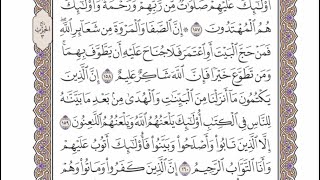 أُو۟لَـٰٓئِكَ عَلَيْهِمْ صَلَوَٰتٌ مِّن رَّبِّهِمْ وَرَحْمَةٌ وَأُو۟لَـٰٓئِكَ
هُمُ ٱلْمُهْتَدُونَ ١٥٧ إِنَّ ٱلصَّفَا وَٱلْمَرْوَةَ مِن شَعَآئِرِ ٱللَّهِ
فَمَنْ حَجَّ ٱلْبَيْتَ أَوِ ٱعْتَمَرَ فَلَا جُنَاحَ عَلَيْهِ أَن يَطَّوَّفَ بِهِمَا
وَمَن تَطَوَّعَ خَيْرًا فَإِنَّ ٱللَّهَ شَاكِرٌ عَلِيمٌ ١٥٨ إِنَّ ٱلَّذِينَ
يَكْتُمُونَ مَآ أَنزَلْنَا مِنَ ٱلْبَيِّنَـٰتِ وَٱلْهُدَىٰ مِنۢ بَعْدِ مَا بَيَّنَّـٰهُ
لِلنَّاسِ فِى ٱلْكِتَـٰبِ أُو۟لَـٰٓئِكَ يَلْعَنُهُمُ ٱللَّهُ وَيَلْعَنُهُمُ ٱللَّـٰعِنُونَ ١٥٩
إِلَّا ٱلَّذِينَ تَابُوا۟ وَأَصْلَحُوا۟ وَبَيَّنُوا۟ فَأُو۟لَـٰٓئِكَ أَتُوبُ عَلَيْهِمْ
وَأَنَا ٱلتَّوَّابُ ٱلرَّحِيمُ ١٦٠ إِنَّ ٱلَّذِينَ كَفَرُوا۟ وَمَاتُوا۟ وَهُمْ